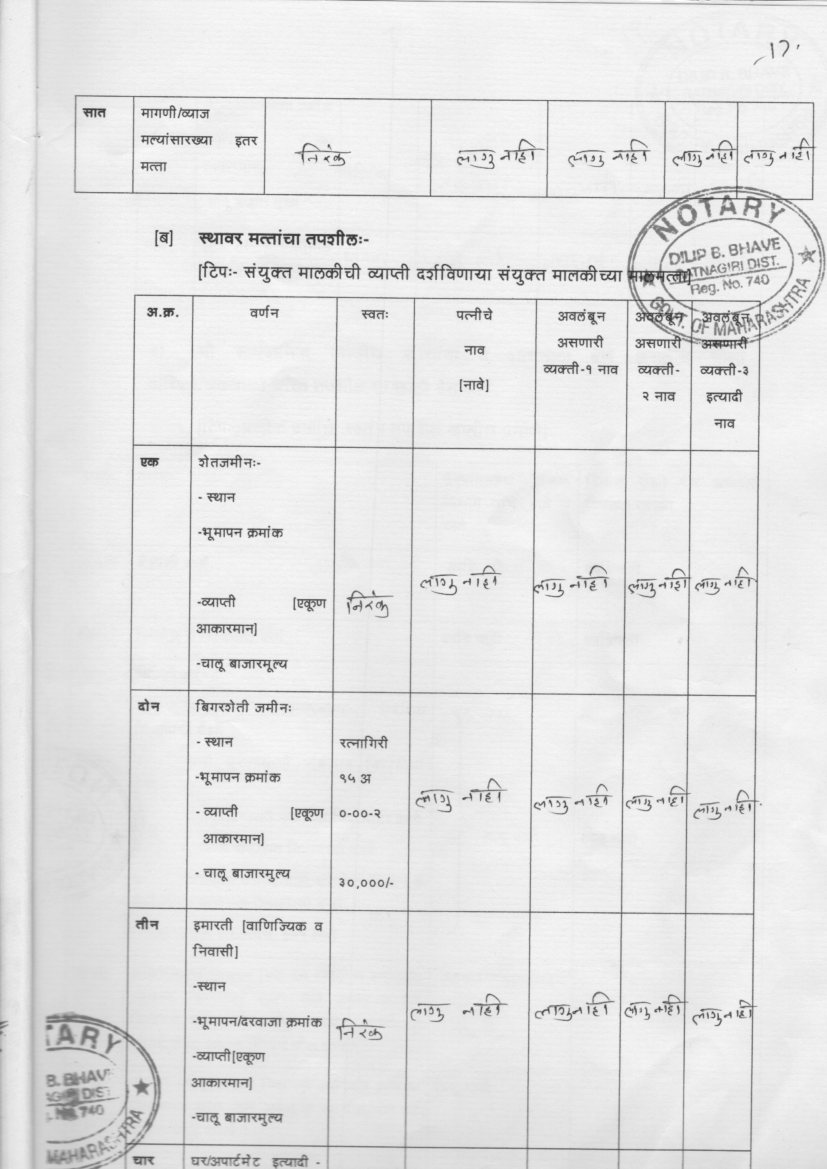 17.
सात मागणी/व्याज
मत्यांसारख्या इतर
मत्ता
निरंक लागु नाही लागु नाही लागु नाही लागु नाही
[ब] स्थावर मत्तांचा तपशीलः-
[टिपः- संयुक्त मालकीची व्याप्ती दर्शविणाया संयुक्त मालकीच्या मालमत्ता]
NOTARY
DILIP B. BHAVE
RATNAGIRI DIST.
Reg. No. 740
GOVT. OF MAHARASHTRA
अ.क्र. वर्णन स्वतः पत्नीचे नाव [नावे] अवलंबून असणारी व्यक्ती-१ नाव अवलंबून असणारी व्यक्ती-२ नाव अवलंबून असणारी व्यक्ती-३ इत्यादी नाव
एक शेतजमीनः-
- स्थान
-भूमापन क्रमांक
-व्याप्ती [एकूण
आकारमान]
-चालू बाजारमूल्य
निरंक लागु नाही लागु नाही लागु नाही लागु नाही
दोन बिगरशेती जमीनः
- स्थान रत्नागिरी
-भूमापन क्रमांक १५ अ
- व्याप्ती [एकूण ०-००-२
आकारमान]
- चालू बाजारमुल्य ३०,०००/-
लागु नाही लागु नाही लागु नाही लागु नाही
तीन इमारती [वाणिज्यिक व
निवासी]
-स्थान
-भूमापन/दरवाजा क्रमांक
-व्याप्ती[एकूण
आकारमान]
-चालू बाजारमुल्य
निरंक लागु नाही लागु नाही लागु नाही लागु नाही
चार घर/अपार्टमेंट इत्यादी -
TARY
B. BHAV
AGIRI DIS
No 740
MAHARASHTRA